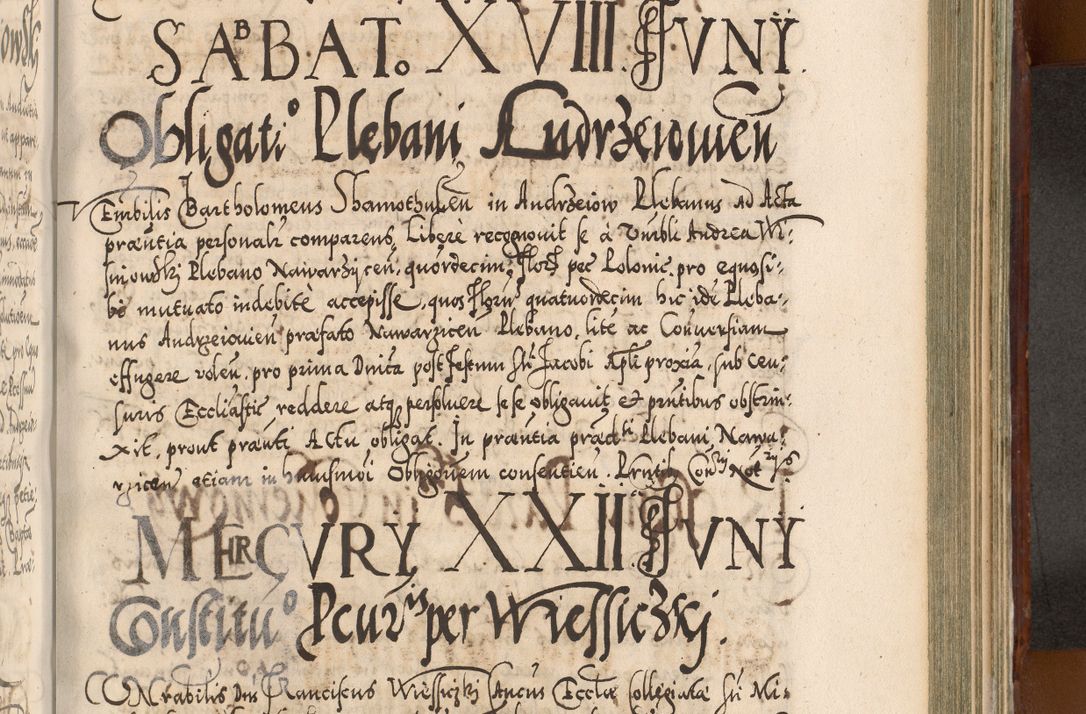 SABBATO XVIII JUNY
Obligatio Plebani Andrzeiowien
Enibilis Bartholomeus Shamothulien in Andrzeiow Plebanus ad Acta
præntia personalr comparens, Libere recognovit se à Vnibli Andrea Wi:
sniowski Plebano Nawarzycen, quordecim, flor pec Polonic. pro eqnosi:
bi mutuato indebitè accepisse, quos florn quatuordecim hic idē Pleba:
nus Andrzeiowien præfato Nawarzicen Plebano, lite ac Conuersiam
effugere volen, pro prima Dnica post festum Sti Jacobi Apli proxia, sub Cen:
suris Eccliastic reddere atq persoluere se se obligauit et prntibus obstrin:
xit, prout prænti Actu obligat. In præntia præd ti Plebani Nawa:
rzicen etiam in huiusmoi Obligonem consentien. Prntib
MERCURY XXII JUNY
Constitutio Pcuris per Wiessiczki.
Nrabilis Dns Franciscus Wiessiczki Ecclæ Collegiatæ Sti Mi: